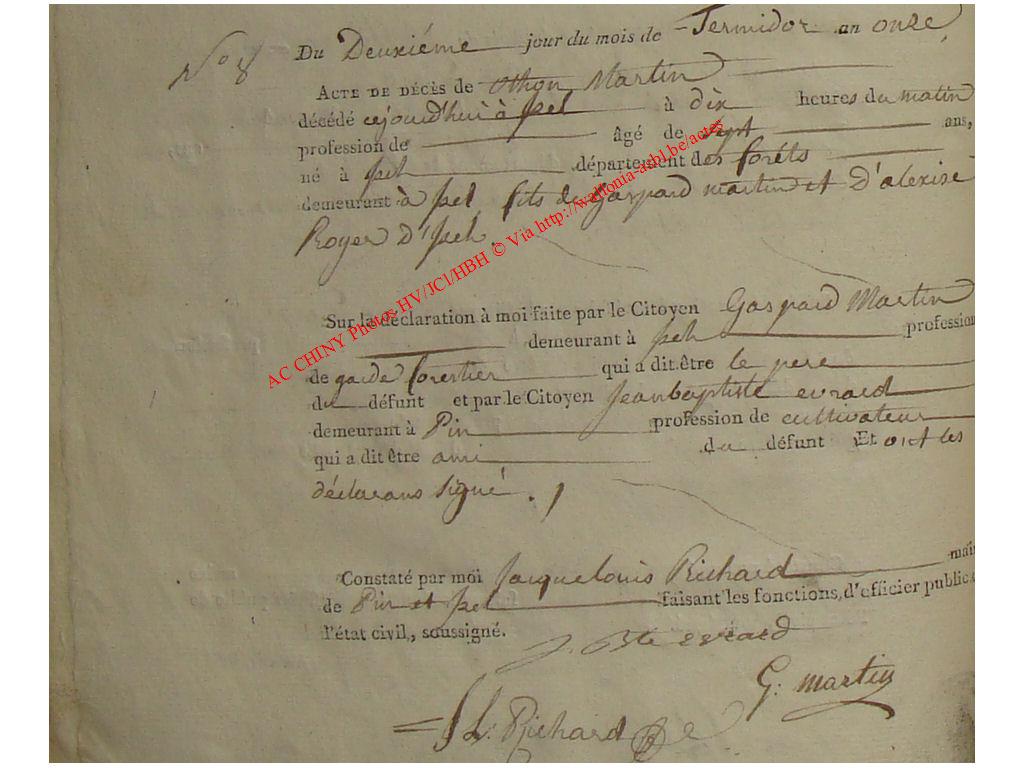 No 8
Du Deuxiéme jour du mois de Termidor an onze,
ACTE DE DÉCÈS de othon Martin
décédé cejourd'huі à Izel à dix heures du matin
profession de âgé de sept ans,
né à Izel département des foréts
demeurant à Izel, fils de Gaspard martin et D'alexise
Roger D'Izel.
Sur la déclaration à moi faite par le Citoyen Gaspard Martin
demeurant à Izel profession
de garde forestier qui a dit être le pere
du défunt et par le Citoyen Jeanbaptiste evrard
demeurant à Pin profession de cultivateur
qui a dit être ami du défunt Et ont les
déclarans signé.
Constaté par moi Jacquelouis Richard mair
de Pin et Izel faisant les fonctions d'officier public d
l'état civil, soussigné.
J. Bte evrard
G: martin
J L: Richard
AC CHINY Photos HV/JCl/HBH © Via http://wallonia-asbl.be/actes